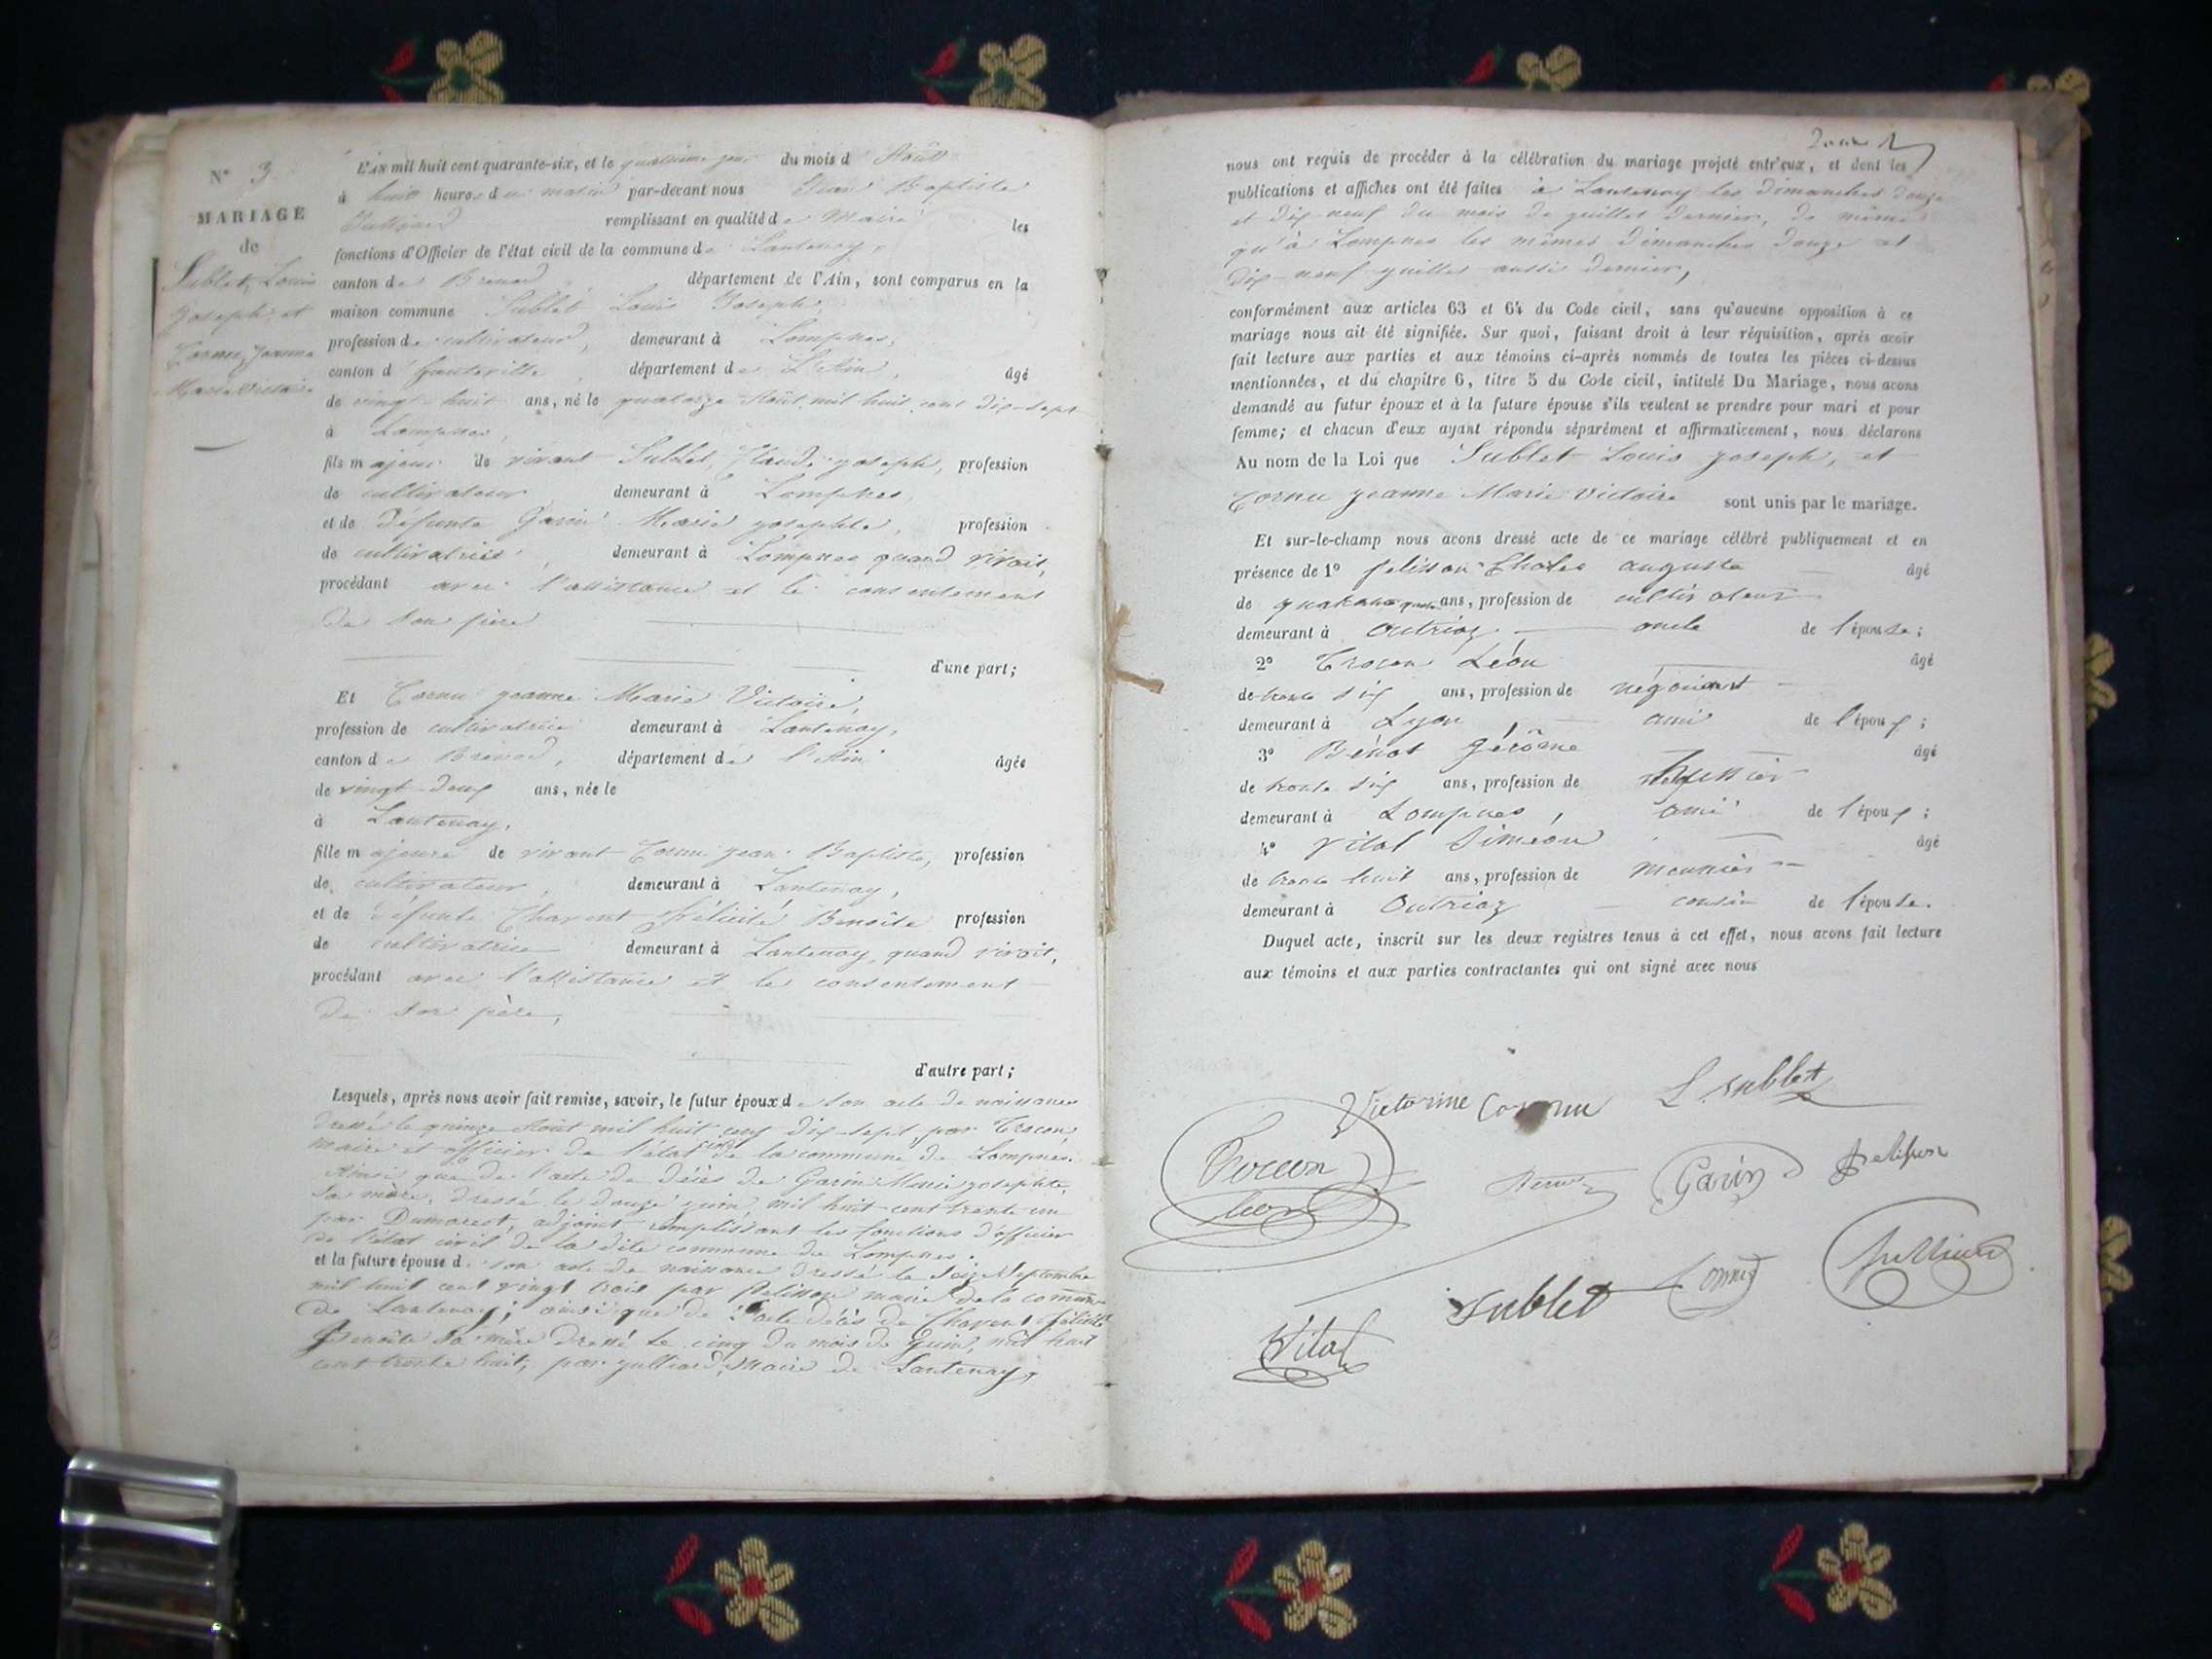 N° 3
MARIAGE
de
Sublet, Louis
Joseph, et
Cornu, Jeanne
Marie Victoire
L'an mil huit cent quarante-six, et le quatrième jour du mois d Août
à huit heures du matin par-devant nous Jean Baptiste
Julliard remplissant en qualité de Maire les
fonctions d'Officier de l'état civil de la commune de Lantenay,
canton de Brenod département de l'Ain, sont comparus en la
maison commune Sublet Louis Joseph,
profession de cultivateur, demeurant à Lompnes,
canton d'hauteville, département de L'Ain, âgé
de vingt huit ans, né le quatorze Août mil huit cent dix-sept
à Lompnes,
fils majeur de vivant Sublet, Claude joseph, profession
de cultivateur, demeurant à Lompnes,
et de défunte Garin Marie josephte, profession
de cultivatrice, demeurant à Lompnes quand vivait,
procédant avec l'assistance et le consentement
de son père
d'une part;
Et Cornu jeanne Marie Victoire,
profession de cultivatrice demeurant à Lantenay,
canton de Brenod, département de l'Ain âgée
de vingt-deux ans, née le
à Lantenay,
fille majeure de vivant Cornu jean Baptiste, profession
de cultivateur, demeurant à Lantenay,
et de défunte Charvet félicité Benoîte profession
de cultivatrice demeurant à Lantenay, quand vivait,
procédant avec l'assistance et le consentement
de son père,
d'autre part;
Lesquels, après nous avoir fait remise, savoir, le futur époux de son acte de naissance
dressé le quinze Août mil huit cent dix-sept par Trocon
maire et officier de l'état civil de la commune de Lompnes.
Ainsi que de l'acte de décès de Garin Marie josephte,
sa mère, dressé le douze juin, mil huit cent trente un
par Dumarest, adjoint remplissant les fonctions d'officier
de l'état civil de la dite commune de Lompnes.
et la future épouse de son acte de naissance dressé le seize Septembre
mil huit cent vingt trois par Pelisson maire de la commune
de Lantenay; ainsi que de l'acte décès de Charvet félicité
Benoîte sa mère dressé le cinq du mois de Juin, mil huit
cent trente huit, par julliard, Maire de Lantenay,
nous ont requis de procéder à la célébration du mariage projeté entr'eux, et dont les
publications et affiches ont été faites à Lantenay les dimanches douze
et dix-neuf du mois de juillet dernier, de même
qu'à Lompnes les mêmes dimanches douze et
dix-neuf juillet aussi dernier,
conformément aux articles 63 et 64 du Code civil, sans qu'aucune opposition à ce
mariage nous ait été signifiée. Sur quoi, faisant droit à leur réquisition, après avoir
fait lecture aux parties et aux témoins ci-après nommés de toutes les pièces ci-dessus
mentionnées, et du chapitre 6, titre 5 du Code civil, intitulé Du Mariage, nous avons
demandé au futur époux et à la future épouse s'ils veulent se prendre pour mari et pour
femme; et chacun d'eux ayant répondu séparément et affirmativement, nous déclarons
Au nom de la Loi que Sublet Louis joseph, et
Cornu jeanne Marie Victoire sont unis par le mariage.
Et sur-le-champ nous avons dressé acte de ce mariage célébré publiquement et en
présence de 1° pelisson Charles auguste âgé
de quarante quatre ans, profession de cultivateur
demeurant à Outriaz oncle de l'épouse;
2° Trocon Léon âgé
de trente six ans, profession de négociant
demeurant à Lyon, ami de l'époux;
3° Benot Gérôme âgé
de trente six ans, profession de huissier
demeurant à Lompnes, ami de l'époux;
4° Vital Siméon âgé
de trente huit ans, profession de meunier
demeurant à Outriaz cousin de l'épouse.
Duquel acte, inscrit sur les deux registres tenus à cet effet, nous avons fait lecture
aux témoins et aux parties contractantes qui ont signé avec nous
Victorine Cornu L. Sublet
Trocon
Léon
Garin
Pelisson
Sublet
Cornu
Julliard
Vital